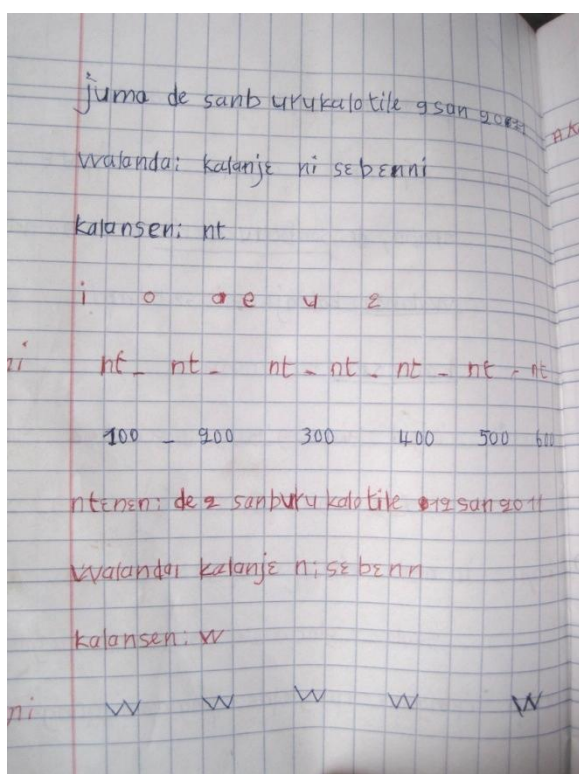 juma de sanburukalo tile 9 san 2011
walanda: kalanjɛ ni sɛbɛnni
kalansen: nt
i o a e u ɛ
ni nt - nt - nt - nt - nt - nt - nt
100 - 200 300 400 500 600
ntɛnɛn: de 2 sanburu kalo tile 12 san 2011
walanda: kalanjɛ ni sɛbɛnn
kalansen: w
ni w w w w w